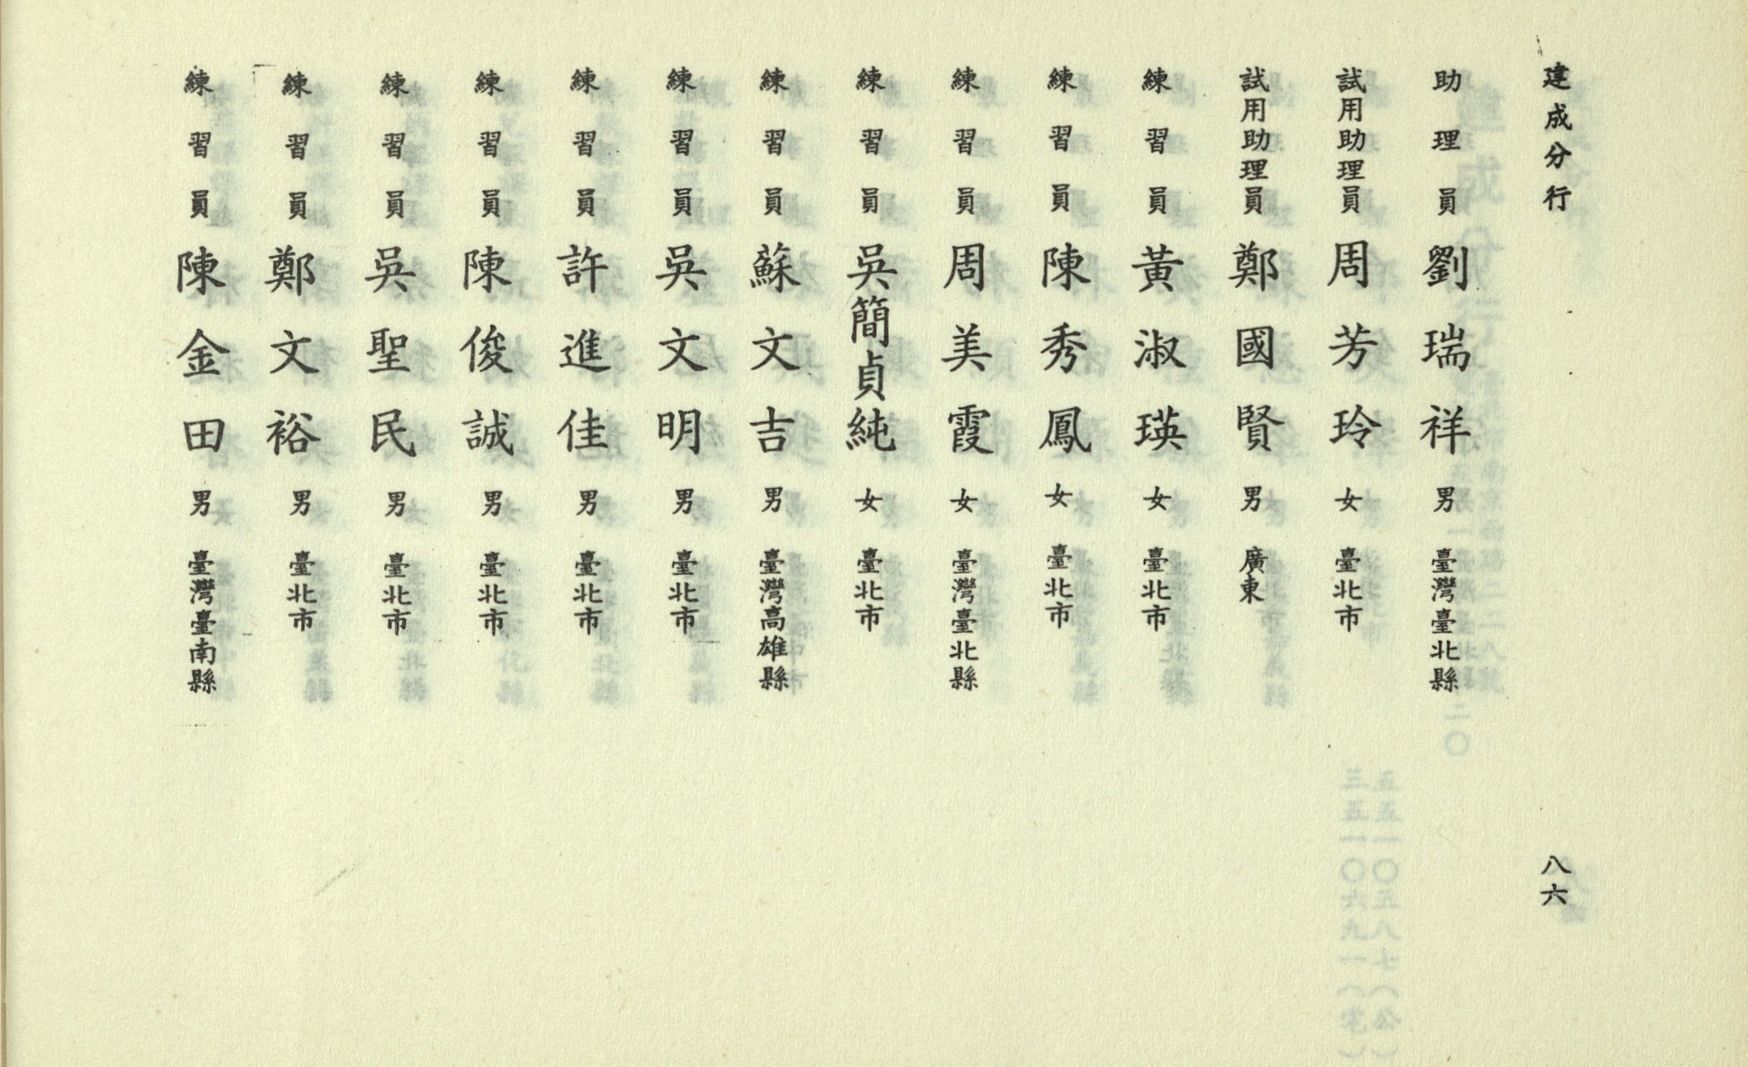 建成分行
八六
助理員 劉瑞祥 男 臺灣臺北縣
試用助理員 周芳玲 女 臺北市
試用助理員 鄭國賢 男 廣東
練習員 黃淑瑛 女 臺北市
練習員 陳秀鳳 女 臺北市
練習員 周美霞 女 臺灣臺北縣
練習員 吳簡貞純 女 臺北市
練習員 蘇文吉 男 臺灣高雄縣
練習員 吳文明 男 臺北市
練習員 許進佳 男 臺北市
練習員 陳俊誠 男 臺北市
練習員 吳聖民 男 臺北市
練習員 鄭文裕 男 臺北市
練習員 陳金田 男 臺灣臺南縣